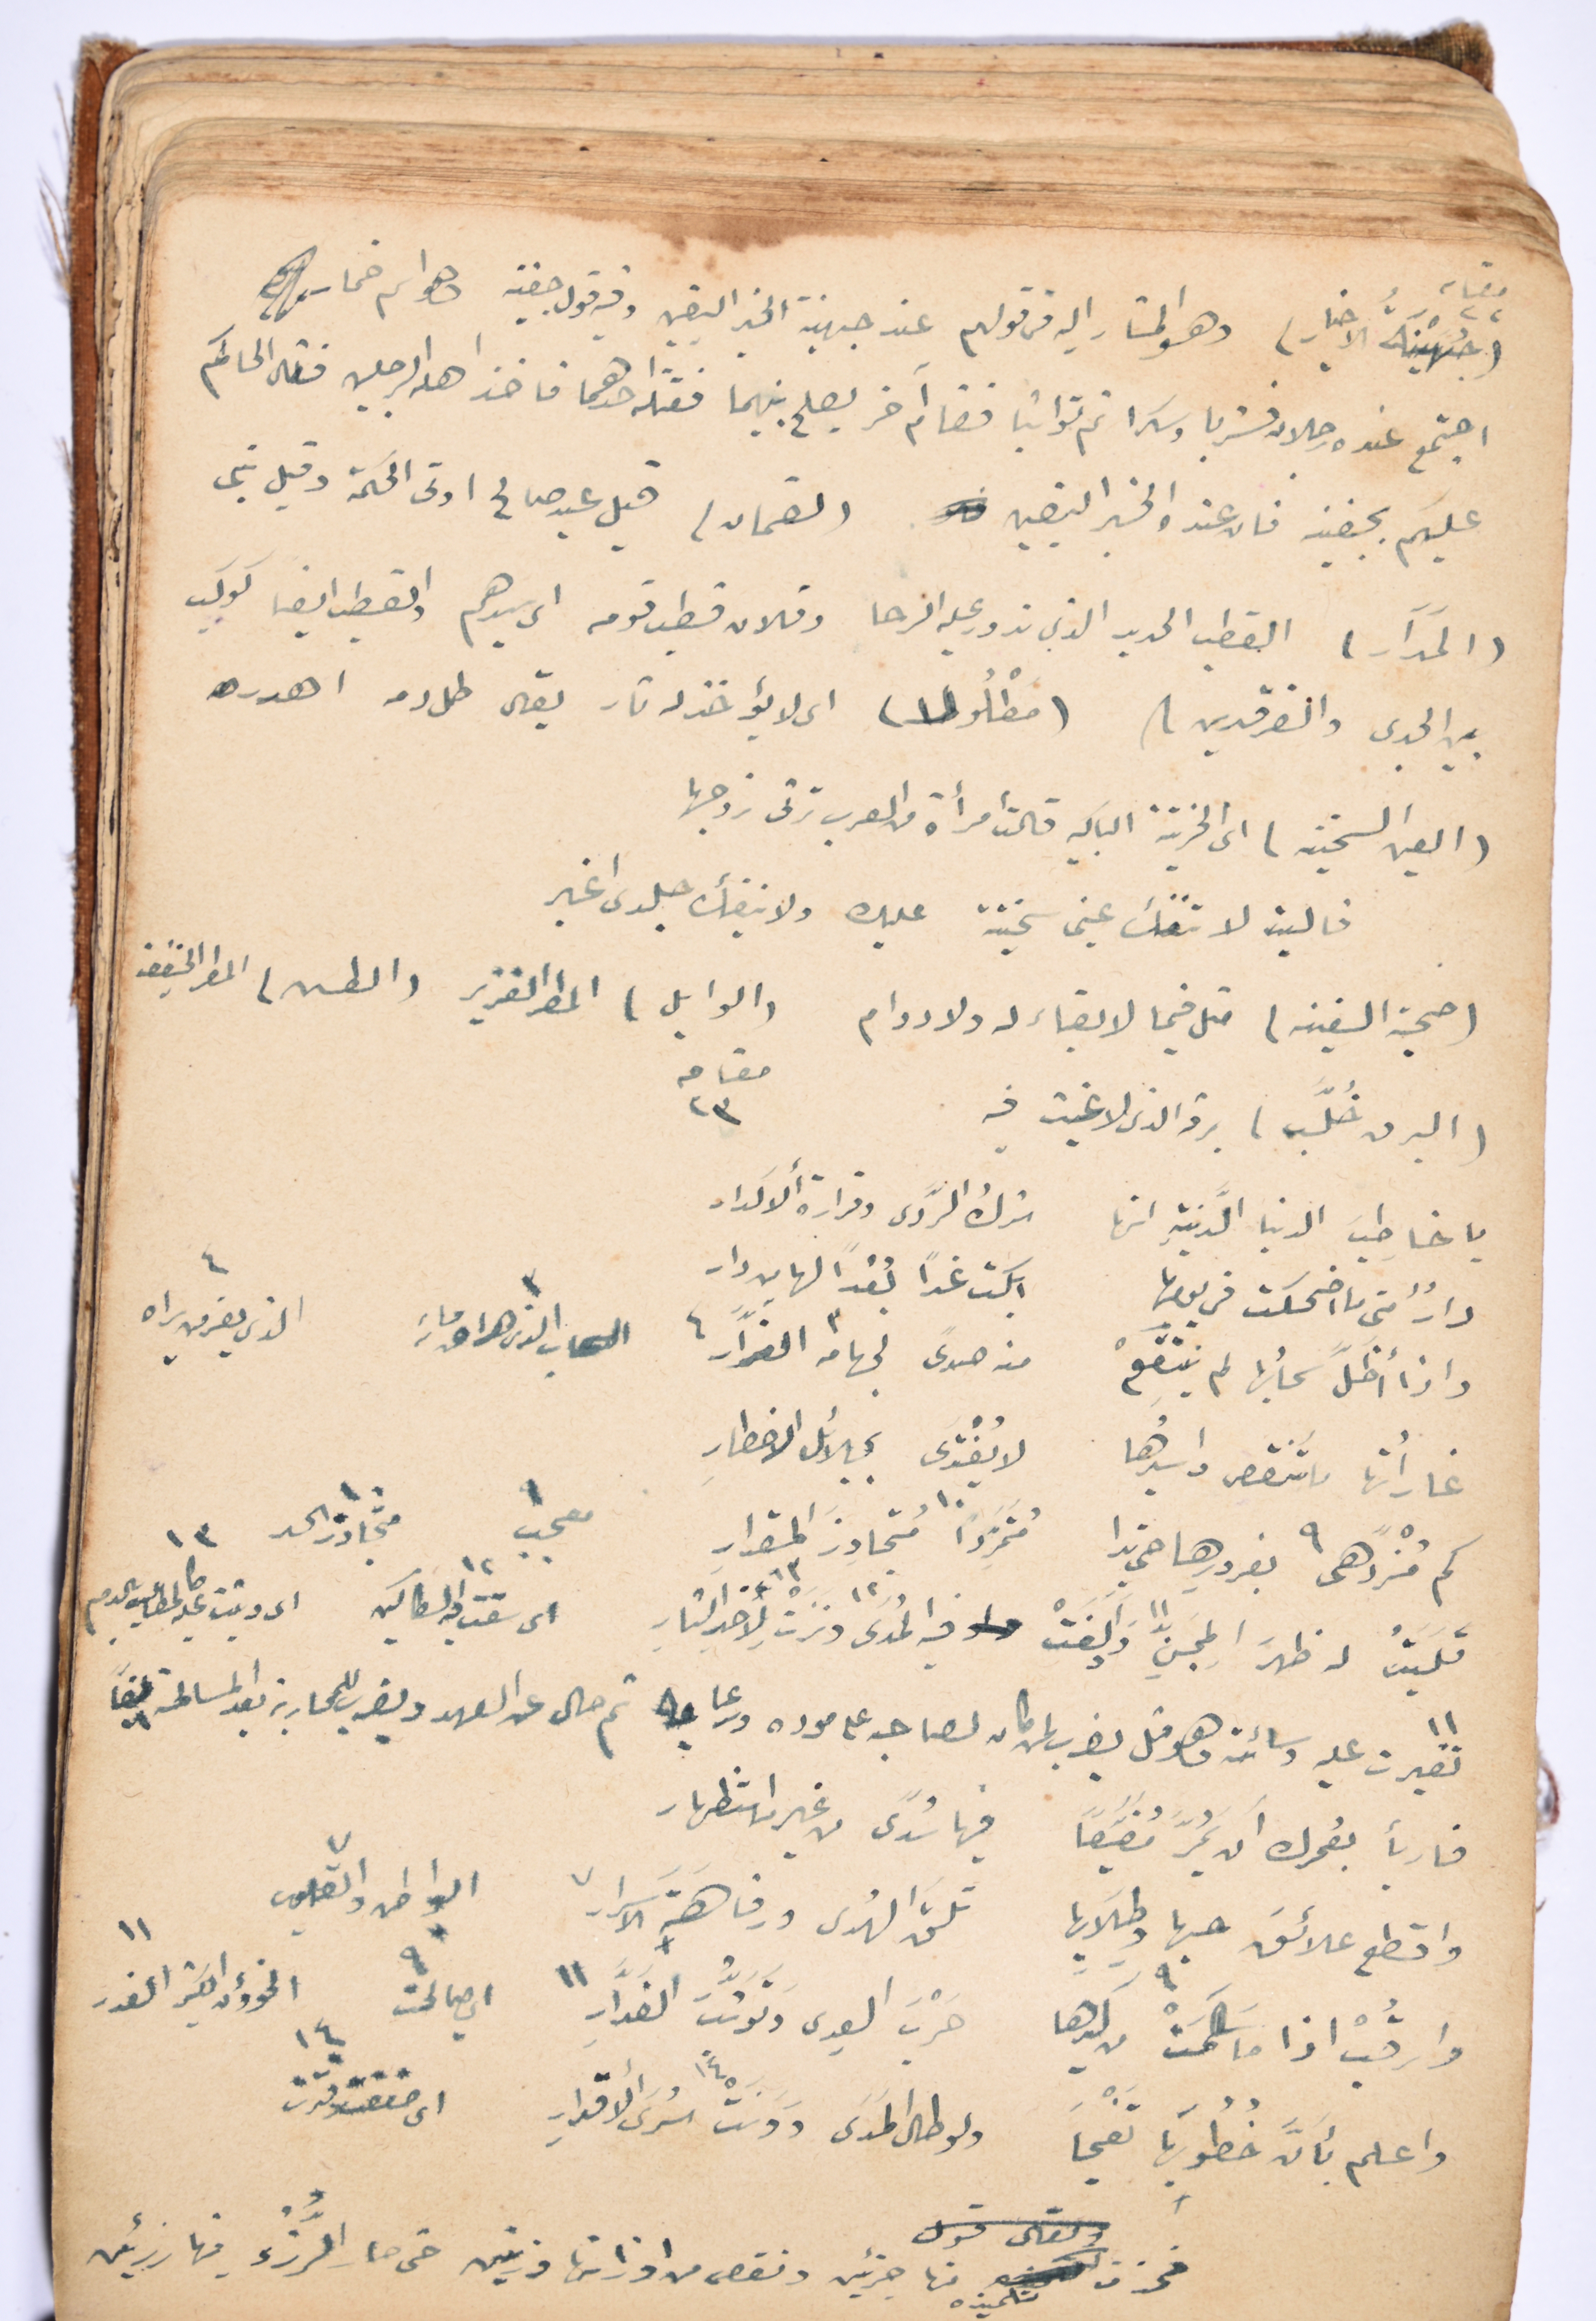 مقامه
٢٢
(جُهَيْنَةُ الاخبار) وهو المشار اليه فى قولهم عند جهينة الخبر اليقين وفيه قول جفينه وهو اسم خمار
اجتمع عنده رجلان فشربا وسكرا ثم تواثبا فقام آخر يصلح بينهما فقتله احدهما فاخذ اهله الرجلين فقال الحاكم
عليكم بجفينه فان عنده الخبر اليقين (لقمان) قيل عبد صالح اوتى الحكمة وقيل نبى
(المَدَار) القطب الحديد الذى تدور عليه الرحا وفلان قطب قومه اى سيدهم والقطب ايضا كوكب
بين الجدى والفرقدين) (مَطْلُولا) اى لا يؤخذ له ثار يقال طل دمه اهدره
(العين السخينه) اى الحزينة الباكيه قالت امرأة من العرب ترثى زوجها
فاليت لا تنفك عينى سخينة عليك ولا ينفك جلدى اغبر
(صحبة السفينه) مثل فيما لا بقاء له ولا دوام (الوابل) المطر الغزير (الطل) المطر الخفيف
مقامه
٢٣
(البرق خُلَّب) برق الذى لا غيث فيه
يا خاطِبَ الدنيا الدَّنيَّةِ انها شرك الرَّدى وقرارة الاكدار
دارٌ متى ما اضحكت فى يومها ابكت غداً بُعْداً لها من دار
واذا أظَلَّ سحابُها لم يَنتَقِعْ منه صدىً لجهامه ٣ الغرَّار ٤
٣ السحاب الذى هراق ماءه
٤ الذى يغر من يراه
غاراتُها ما تنقضى واسيرُها لا يُفْتَدَى بجلائل الاخطارِ
كم مُزْدَهى ٩ بغرورها حتى بدا مُتَمَرِّداً ١٠ مُتَجاوِزَ المقدارِ
٩ معجب
١٠ متجاوز الحد
قَلَبَتْ له ظهرَ المِجَنِّ ١١ وَأَولَغَتْ فيه المُدَى ١٢ ونَزَتْ ١٣ لِأَخذِ الثارِ
١٢ اى سقت فيه السكاكين
١٣
١١ تغيرت عليه وسائته وهو مثل يضرب لمن كان لصاحبه على موده ورعاية ثم حال عن العهد ويضرب للمحاربة بعد المسالمة ايضاً
فاربأ بعمرك أن يَمُرَّ مُضَيَّعاً فيها سُدىً من غير استظهار
واقطع علائقَ حبها وطِلابِها تلقَ الهدى ورفاهَةَ الاسرار ٧
٧ البواطن والقلوب
وارقُبْ اذا ما سَالَمَتْ ٩ من كيدها حَرْبَ العِدى وَتَوَثُّبَ الغَدَّارِ ١١
٩ اى صالحت
١١ الخوؤن الكثير الغدر
واعلم بأنَّ خُطوبَها تَفْجَا ولو طال المَدَى وَوَنَتْ ١٤ سُرَى الأقدارِ
١٤ اى ضعفت وفترت
تلميذه منها جزئين ونقص من اوزانها وزنين حتى صار الرُّزْء فيها رزئين